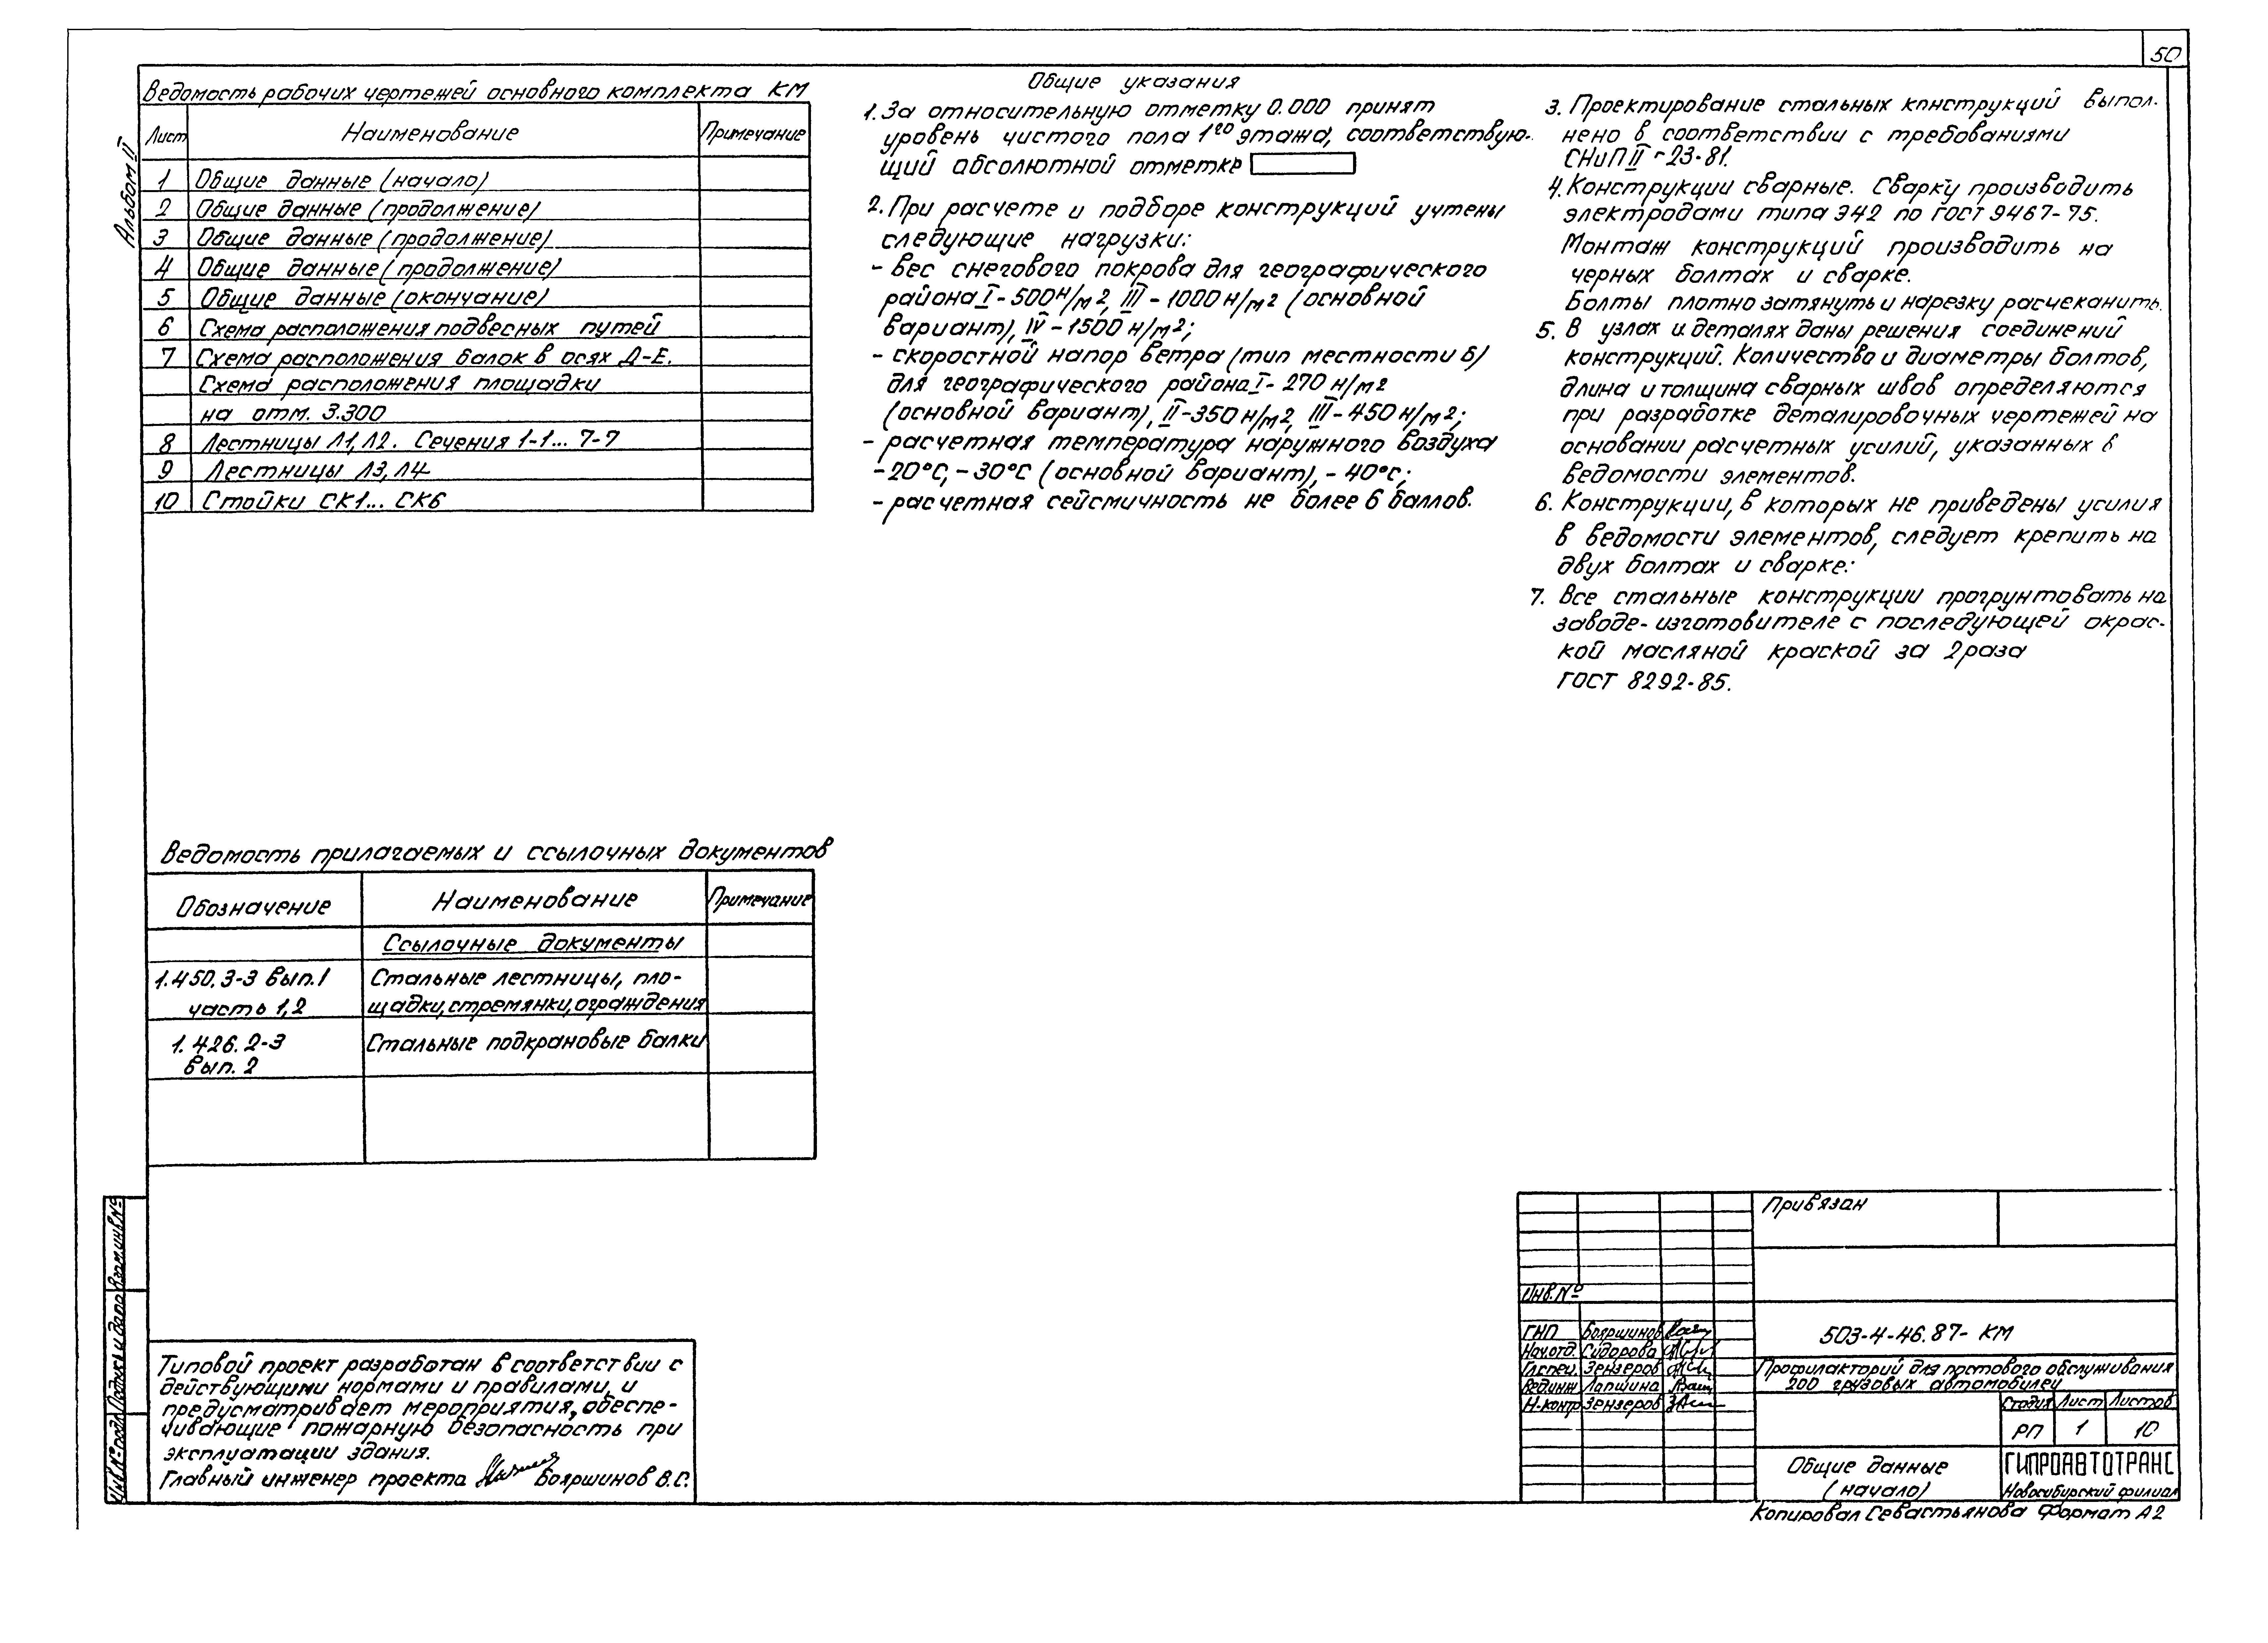 50
Альбом II
Ведомость рабочих чертежей основного комплекта КМ
Лист Наименование Примечание
1 Общие данные (начало)
2 Общие данные (продолжение)
3 Общие данные (продолжение)
4 Общие данные (продолжение)
5 Общие данные (окончание)
6 Схема расположения подвесных путей
7 Схема расположения балок в осях Д-Е.
Схема расположения площадки
на отм. 3.300
8 Лестницы Л1, Л2. Сечения 1-1... 7-7
9 Лестницы Л3, Л4
10 Стойки СК1... СК6
Ведомость прилагаемых и ссылочных документов
Обозначение Наименование Примечание
Ссылочные документы
1.450.3-3 вып.1 Стальные лестницы, пло-
часть 1,2 щадки, стремянки, ограждения
1.426.2-3 Стальные подкрановые балки
вып. 2
Общие указания
1. За относительную отметку 0.000 принят
уровень чистого пола 1го этажа, соответствую-
щий абсолютной отметке
2. При расчете и подборе конструкций учтены
следующие нагрузки:
- вес снегового покрова для географического
района I - 500 н/м2, III - 1000 н/м2 (основной
вариант), IV - 1500 н/м2;
- скоростной напор ветра (тип местности б)
для географического района I - 270 н/м2
(основной вариант), II - 350 н/м2, III - 450 н/м2;
- расчетная температура наружного воздуха
-20°С, -30°С (основной вариант), -40°С;
- расчетная сейсмичность не более 6 баллов.
3. Проектирование стальных конструкций выпол-
нено в соответствии с требованиями
СНиП II - 23-81.
4. Конструкции сварные. Сварку производить
электродами типа Э42 по ГОСТ 9467-75.
Монтаж конструкций производить на
черных болтах и сварке.
Болты плотно затянуть и нарезку расчеканить.
5. В узлах и деталях даны решения соединений
конструкций. Количество и диаметры болтов,
длина и толщина сварных швов определяются
при разработке деталировочных чертежей на
основании расчетных усилий, указанных в
ведомости элементов.
6. Конструкции, в которых не приведены усилия
в ведомости элементов, следует крепить на
двух болтах и сварке.
7. Все стальные конструкции прогрунтовать на
заводе-изготовителе с последующей окрас-
кой масляной краской за 2 раза
ГОСТ 8292-85.
Типовой проект разработан в соответствии с
действующими нормами и правилами, и
предусматривает мероприятия, обеспе-
чивающие пожарную безопасность при
эксплуатации здания.
Главный инженер проекта Бояршинов В.С.
Инв.№ подл. Подпись и дата Взам.инв.№
Привязан
Инв.№
ГИП Бояршинов
Нач.отд. Сидорова
Гл.спец. Зензеров
Вед.инж Лапшина
Н.контр Зензеров
503-4-46.87- КМ
Профилакторий для постового обслуживания
200 грузовых автомобилей
Стадия Лист Листов
РП 1 10
Общие данные
(начало)
ГИПРОАВТОТРАНС
Новосибирский филиал
Копировал Севастьянова Формат А2